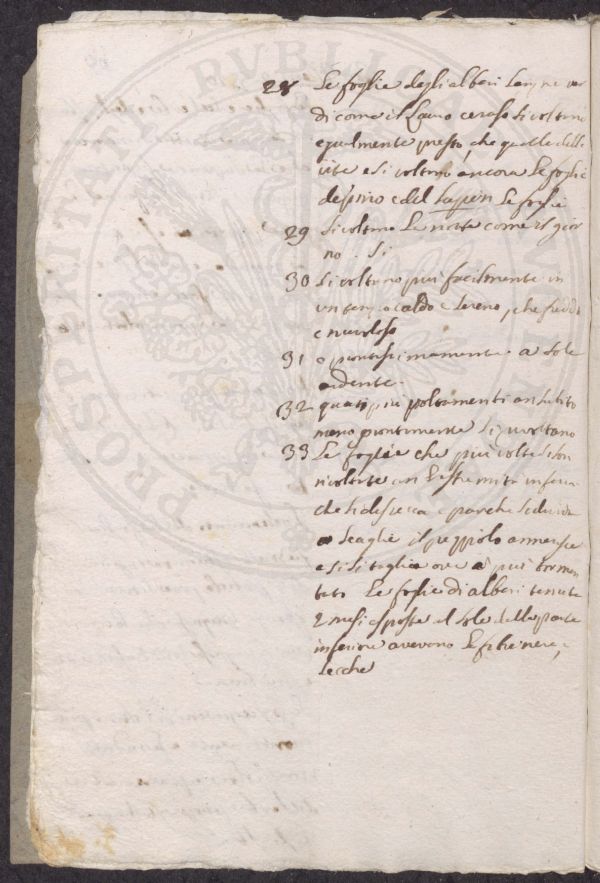 PROSPERITATI PUBLICAE
28 Le foglie degli alberi sempre ver
di come il Lauro ceraso si voltano
egualmente presto, che quelle della
vite e si voltano ancora le foglie
del pino e del Le foglie
29 si voltano la notte come il gior
no. Si
30 si voltano piu facilmente in
un tempo caldo e sereno, che freddo
e nuvoloso
31 e prontissimamente a sole
ardente.
32 quanti piu voltamenti an subito
meno prontamente si rivoltano
33 Le foglie che piu volte si son
rivoltate an l'estremità inferio
che si disecca e pare che si divida
a scaglie il peziolo annerisce
e si
tato Le foglie di alberi tenute
2 mesi esposte al sole dalla parte
inferiore avevano le fibre nere, e
secche